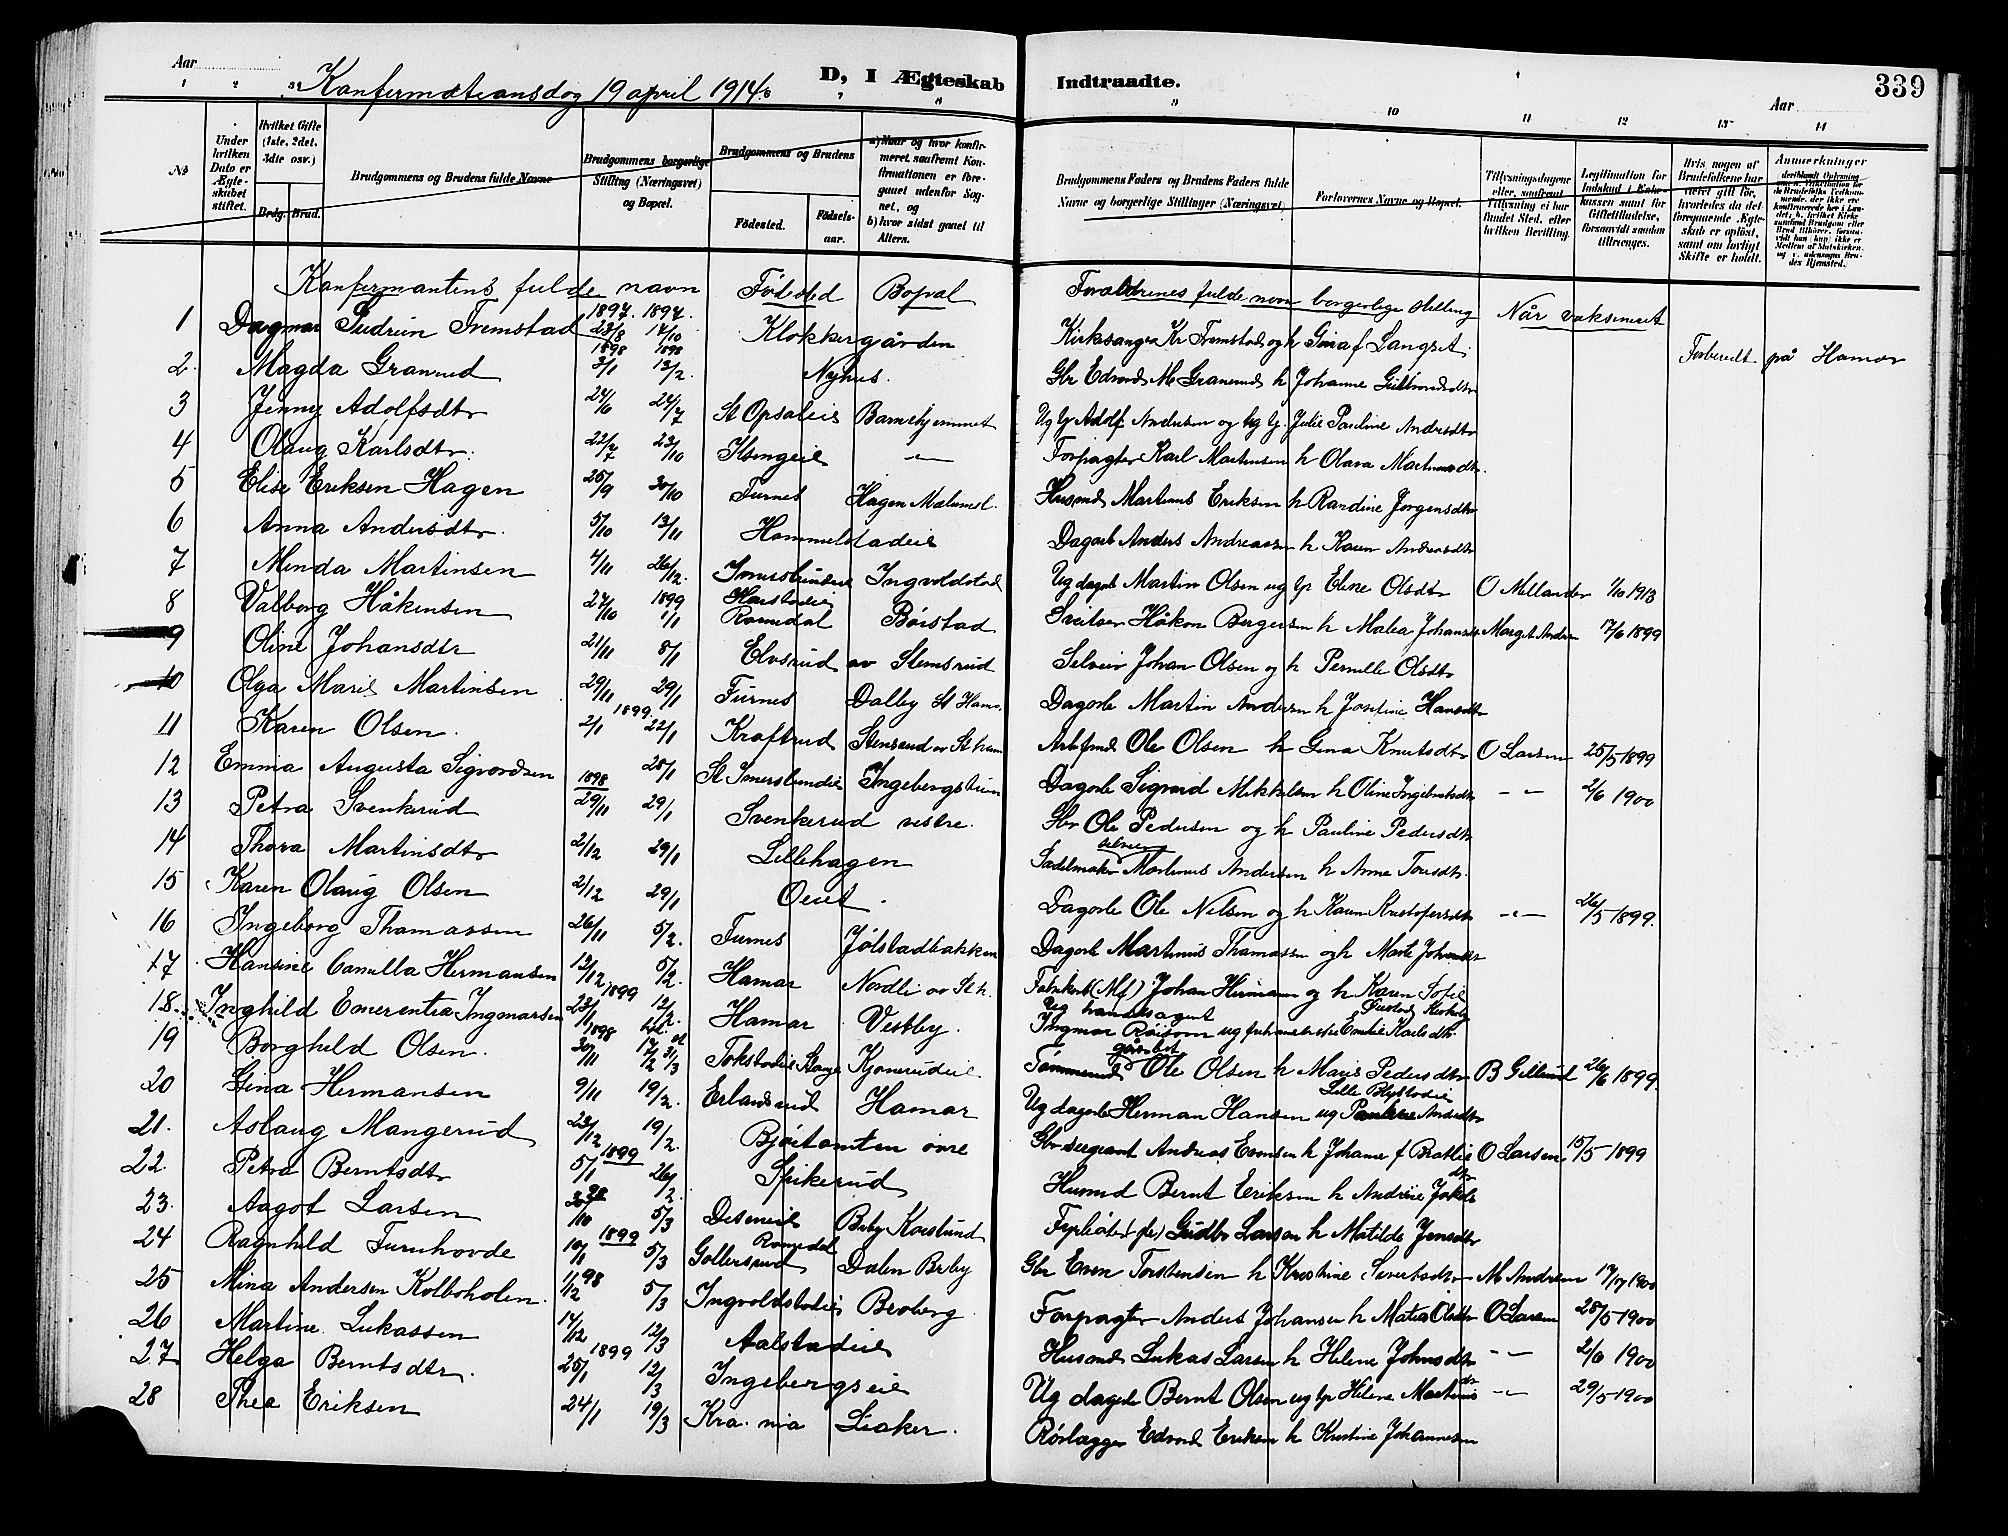 Aar
Konfirmationsdag 19 april 1914.
D, I Ægteskab Indtraadte.
Aar
339
1 2 3 7 8 9 10 11 12 13 14
No
Under hvilken Dato er Ægteskabet stiftet.
Hvilket Gifte (1ste, 2det, 3die osv.)
Brdg. Brud.
Brudgommens og Brudens fulde Navne
Brudgommens borgerlige Stilling (Næringsvei) og Bopæl.
Brudgommens og Brudens
Fødested.
Fødselsaar.
a) Naar og hvor konfirmeret, saafremt Konfirmationen er foregaaet udenfor Sognet, og
b) hvor sidst gaaet til Alters.
Brudgommens Faders og Brudens Faders fulde Navne og borgerlige Stillinger (Næringsvei)
Forlovernes Navne og Bopæl.
Tillysningsdagene eller, saafremt Tillysning ei har fundet Sted, efter hvilken Bevilling.
Legitimation for Indskud i Enkekassen samt for Giftetilladelse, forsaavidt saadan tiltrænges.
Hvis nogen af Brudefolkene har været gift før, hvorledes da det foregaaende Ægteskab er opløst, samt om lovligt Skifte er holdt.
Anmerkninger
Konfermantens fulde navn Fødsted Bopæl Forældrenes fulde navn borgerlige stilling Når vaksineret
1 Dagmar Gudrun Fremstad 1897. 23/8 1897. 17/10 Klokkergården Kirksanger Kr Fremstad og h Gina f Langset.
2. Magda Granrud 1898 3/1 1898 13/2. Nyhus. Gbr Edvard M Granerud h Johanne Gulbrandsdtr Forberedt på Hamar
3 Jenny Adolfsdtr 24/6 24/7 St Opsaleie Barnehjemmet Ug g Adolf Andersen og Ug g. Julie Pauline Andersdtr
4 Olaug Karlsdtr. 22/7 23/10 Ilsengeie -"- Forpagter Karl Martinsen h Olava Martinusdtr.
5 Elise Eriksen Hagen 25/9 30/10 Furnes Hagen Mælumsl. Husmd Martinus Eriksen h Randine Jørgensdtr
6 Anna Andersdtr. 5/10 13/11 Hommelstadeie Dagarb Anders Andreassen h Karen Andreasdtr
7 Minda Martinsen 4/11 26/12. Imerslundeie Ingvoldstad Ug dagarb Martin Olsen ug tp Eline Olsdtr O Mellander 1/10 1913
8 Valborg Håkensen 27/10 1899 1/1 Harstadeie Romedal Børstad Sveitser Håkon Bergersen h Malea Johanses Margit Anders 17/6 1899
9 Oline Johansdtr 21/11 8/1 Elvsrud av Stemsrud Selveir Johan Olsen og h Pernille Olsdtr
10 Olga Marie Martinsen 29/11 29/1 Furnes Dalby St Ham. Dagarb Martin Andersen h Josefine Hansdtr
11 Karen Olsen. 1899. 2/1 22/1 Kraftrud Stensrud av St ham Arbfmd Ole Olsen h Gina Knutsdtr O Larsen 25/5 1899
12 Emma Augusta Sigvardsen 28/1 St Imerslundeie Ingebergstuen Dagarb Sigvard Mikkelsen h Oline Ingebretsdtr -"- 2/6 1900
13 Petra Svenkerud 1898 29/11 29/1 Svenkerud vestre. Gbr Ole Pedersen og h Pauline Pedersdtr
14 Thora Martinsdtr 2/12 29/1 Lillehagen Sadelmaker selveier Martinus Andersen h Anne Toresdtr.
15 Karen Olaug Olsen 2/12 29/1 Oeiet. Dagarb Ole Nilsen og h Karen Kristofersdtr -"- 26/5 1899.
16 Ingeborg Thomassen 26/11 5/2. Furnes Jølstadbakken Dagarb Martinus Thomassen og h Marte Johansdtr
17 Hansine Camilla Hermansen 13/12 5/2. Hamar Nordli av St h. Fabrikarb (Mf) Johan Hermansen og h Karen Sofie
18. Inghild Emerentia Ingmarsen 1899 23/1 12/2. Hamar Vestby. Ug handelsagent Ingmar Røisom ug Emilie Karlsdtr
19 Borghild Olsen. 1898 30/11 12/2 Tokstadeie Stange Kjonerudeie Tømmermd Ole Olsen h Maris Pedersdtr B Gillund 26/6 1899.
20 Gina Hermansen 9/11 19/2. Erlandsrud Hamar Ug dagarb Herman Hansen ug Pauline Andersdtr
21. Aslaug Mangerud 23/12 19/2 Bjørtomten øvre Gbr sergeant Andreas Evensen h Johanne f Bratlie O Larsen 15/5 1899
22. Petra Berntsdtr 1899 5/1 26/2. Spikerud Husmd Bernt Eriksen h Andrine Jakobsdtr
23. Aagot Larsen 98 /10 5/3 Deseneie Bryby Korslund Fyrbøter Gudbr Larsen h Matilde Jensdtr
24 Ragnhild Furuhovde 1899 10/1 5/3 Gollersrud Romedal Dalen Breby Gbr Even Torstensen h Kristine Sivertsdtr M Andersen 17/7 1900
25 Mina Andersen Kolboholen. 1/12 98 5/3 Ingvoldstadeie Broberg. Forpagter Anders Johansen h Matea Olsdtr O Larsen 28/5 1900
26 Martine Lukassen 14/12 12/3 Aalstadeie Husmd Lukas Larsen h Helene Johnsdtr -"- 2/6 1900
27 Helga Berntsdtr. 1899 25/1 12/3 Ingebergseie Ug dagarb Bernt Olsen ug tp Helene Martinusdtr -"- 29/5 1900
28 Thea Eriksen 24/1 19/3 Kra.nia Liaker. Rørlægger Edvard Eriksen h Kristine Johannesen